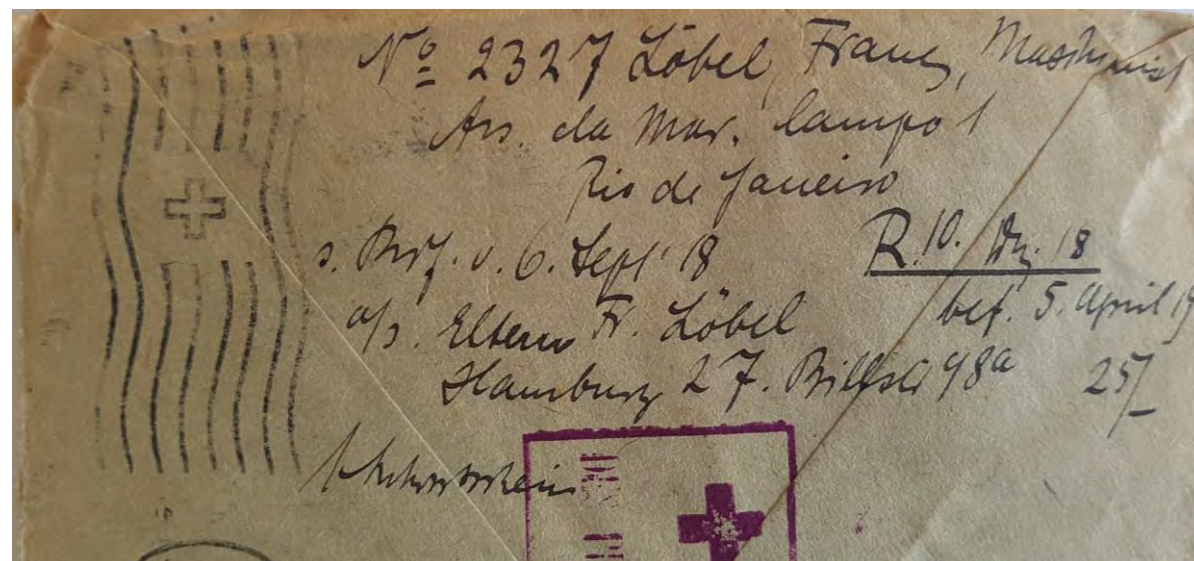 Nº 2327 Löbel, Franz, Maschinist
Ars. da Mar. Campo 1
Rio de Janeiro
s. Brf. v. 6. Sept. 18 R. 10. Dez. 18
a/s. Eltern Fr. Löbel bef. 5. April 19
Hamburg 27. Billstr 98a 25/-